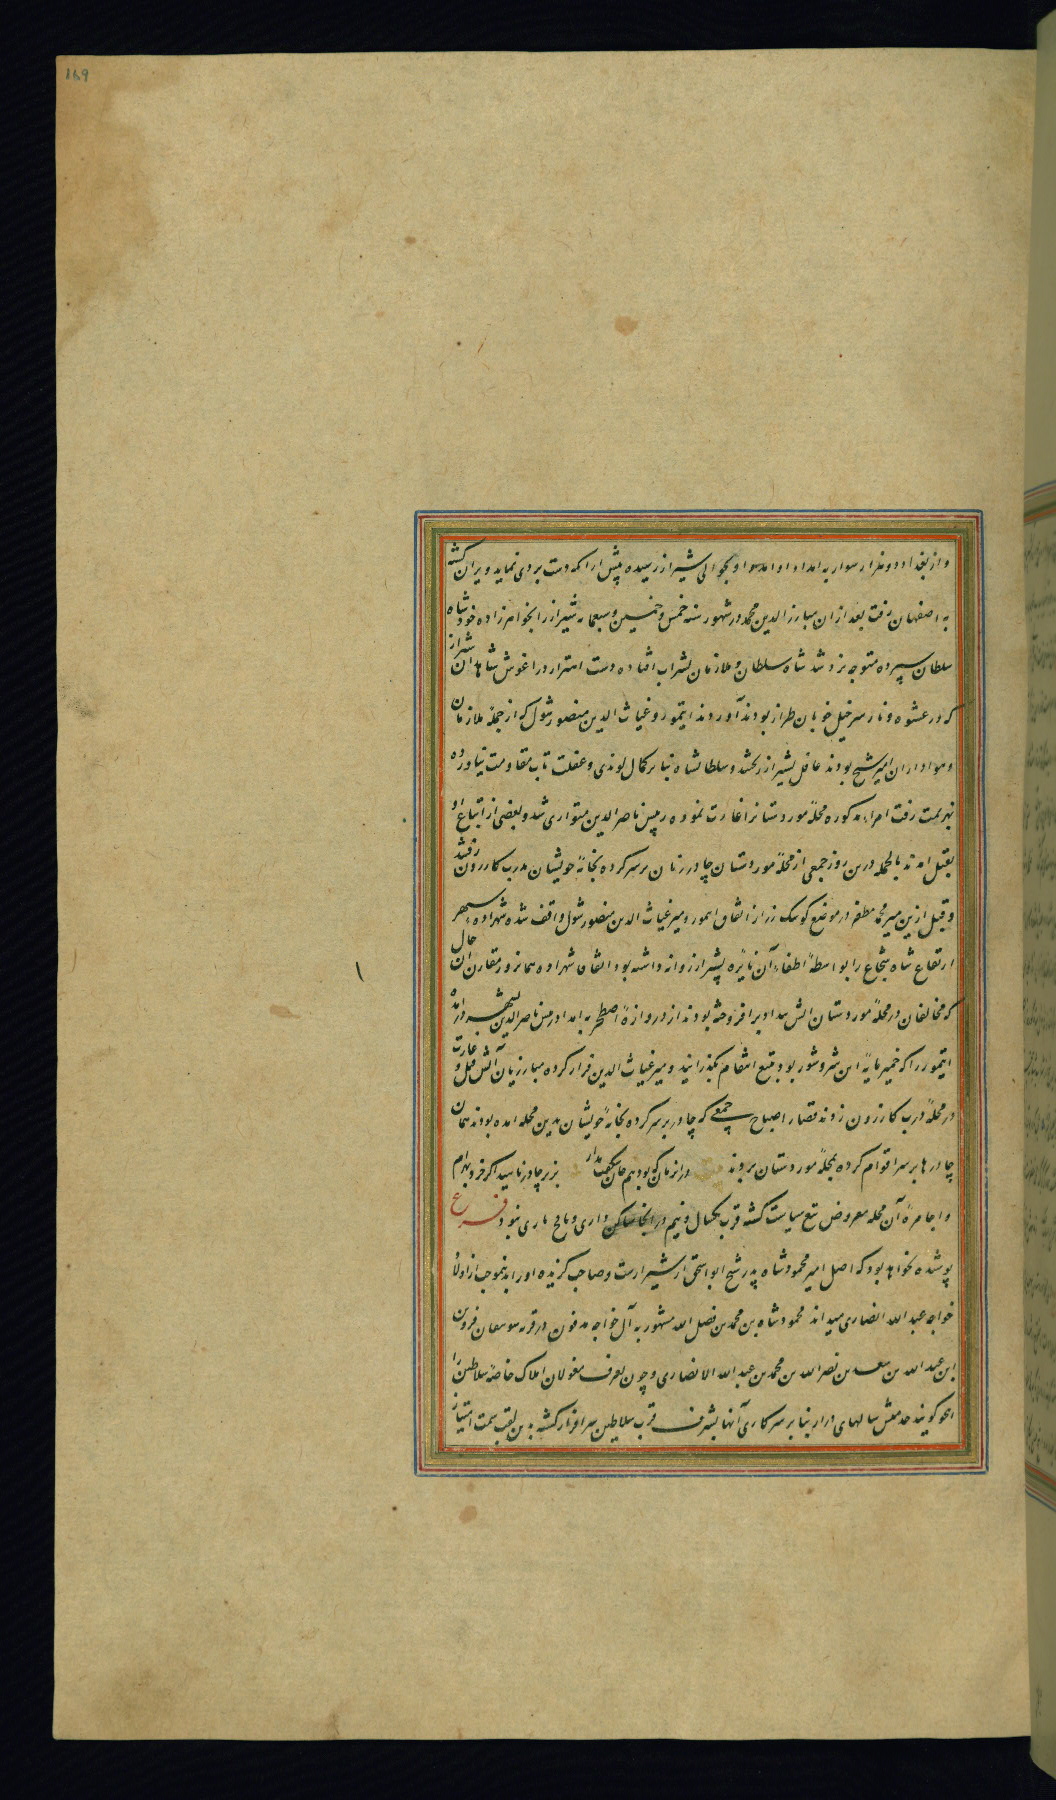 169
و از بغداد دو هزار سوار به امداد او آمده او بحوالی شیراز رسیده پیش از آنکه دست بردی نماید ویران گشته
به اصفهان رفت بعد از ان مبارز الدین محمد در شهور سنه خمس و خمسین و سبعمایه شیراز را بخواهرزاده خود شاه
سلطان سپرده متوجه یزد شد شاه سلطان و ملازمان بشراب افتاده دست استقرار در اغوش شاهدان شیراز
که در عشوه و ناز سر خیل خوبان طراز بودند آوردند ایتمور و غیاث الدین منصور شول که از جمله ملازمان
و هواداران امیر شیخ بودند غافل بشیراز و سلطانشاه بنابر کمال لوندی و غفلت تاب مقاومت نیاورده
بهزیمت رفت امراء مذکوره محلۀ موردستانرا غارت نموده رئیس ناصر الدین متواری شد و بعضی از اتباع او
بقتل امدند بالجمله درین روز جمعی از محلۀ موردستان چادر زنان بر سر کرده بخانۀ خویشان بدرب کازرون رفتند
و قبل ازین میر محمد مظفر در موضع از اتفاق ایمور و میر غیاث الدین منصور شول واقف شده شهزاده سپهر
ارتفاع شاه شجاع را بواسطۀ اطفاء آن نایره بشیراز روانه داشته بود اتفاق شهزاده همانروز مقارن آن حال
که مخالفان در محلۀ موردستان اتش بیداد بر افروخته بودند از دروازۀ اصطخر به امداد رئیس ناصر الدین بشهر درامده
ایتمور را که خمیر مایۀ این شر و شور بود بتیغ انتقام بگذرانید و میر غیاث الدین فرار کرده مبارزیان آتش قتل و غارت
در محلۀ درب کازرون زدند قضا را صباح جمعی که چادر بر سر کرده بخانۀ خویشان بدین محله امده بودند همان
چادرها بر سر اقوام کرده بمحلۀ موردستان بردند در انزمان که بود بیم جان بزیر چادر نایید اگر خرد بهرام
و اجامرۀ آن محله معروض تیغ سیاست گشته قرب یکسال و نیم در انجا ساکن داری و نافخ ناری نبود فرع
پوشیده نخواهد بود که اصل امیر محمود شاه پدر شیخ ابواسحق از شیراز است و صاحب گزیده اورا بدینموجب از اولاد
خواجه عبد الله انصاری میداند محمود شاه بن محمد بن فضل الله مشهور به آل خواجه مدفون در قریه قزوین
ابن عبد الله بن سعد بن نصر الله بن محمد بن عبد الله الانصاری و چون بعرف مغولان املاک خاصۀ سلاطین را
انجو گویند جدش سالهای دراز بنابر سرکاری آنها بشرف قرب سلاطین سرافراز گشته بدین لقب سمت امتیاز